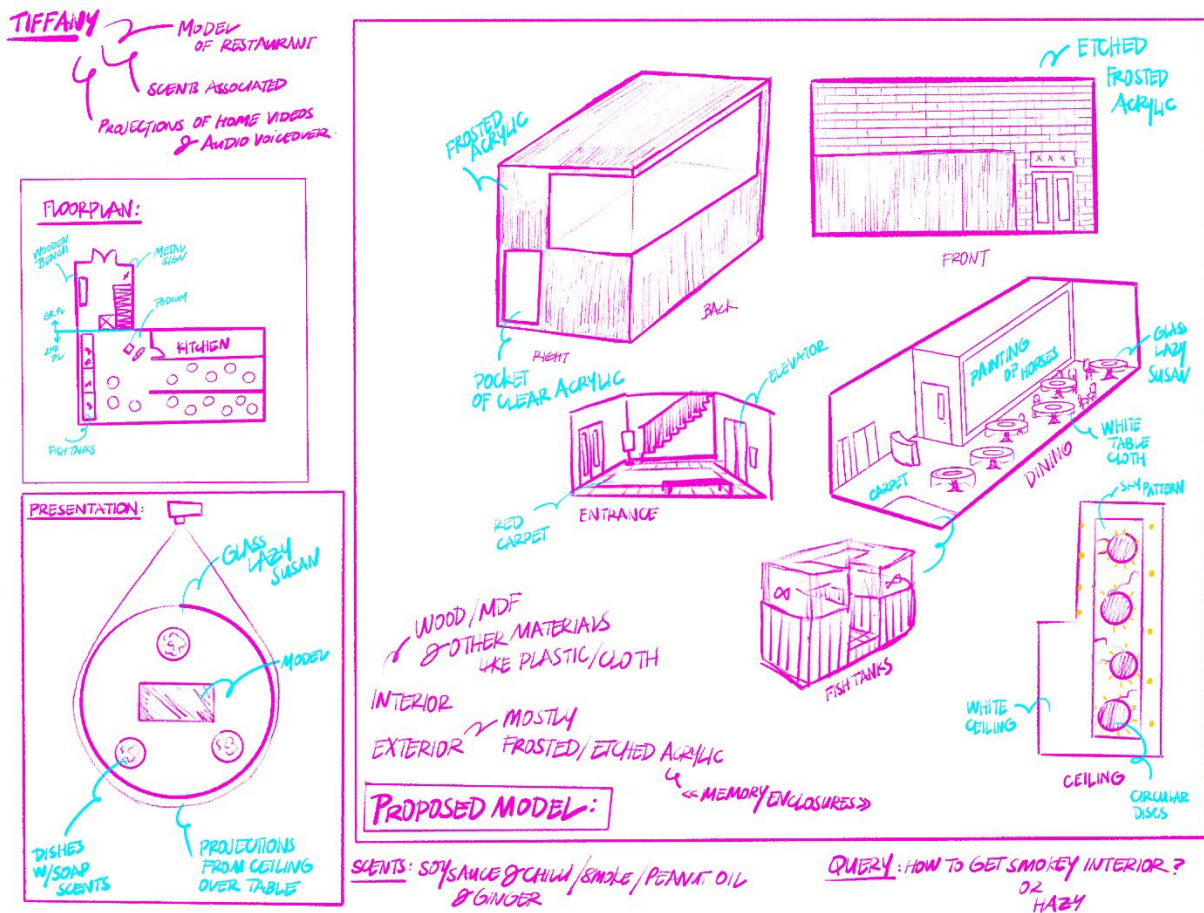 TIFFANY
MODEL
OF RESTAURANT
SCENTS ASSOCIATED
PROJECTIONS OF HOME VIDEOS
& AUDIO VOICEOVER.
FLOORPLAN:
WOODEN
BENCH
METAL
SIGN
PODIUM
GR. FL
2ND
FL
KITCHEN
FISH TANKS
PRESENTATION:
GLASS
LAZY
SUSAN
MODEL
DISHES
W/SOAP
SCENTS
PROJECTIONS
FROM CEILING
OVER TABLE
FROSTED
ACRYLIC
BACK
RIGHT
POCKET
OF CLEAR ACRYLIC
ETCHED
FROSTED
ACRYLIC
XXX
FRONT
ELEVATOR
RED
CARPET
ENTRANCE
PAINTING
OF HORSES
GLASS
LAZY
SUSAN
WHITE
TABLE
CLOTH
CARPET
DINING
FISH TANKS
SKY PATTERN
WHITE
CEILING
CEILING
CIRCULAR
DISCS
WOOD/MDF
& OTHER MATERIALS
LIKE PLASTIC/CLOTH
INTERIOR
EXTERIOR
MOSTLY
FROSTED/ETCHED ACRYLIC
<<MEMORY ENCLOSURES>>
PROPOSED MODEL:
SCENTS: SOY SAUCE & CHILLI / SMOKE / PEANUT OIL
& GINGER
QUERY: HOW TO GET SMOKEY INTERIOR?
OR
HAZY